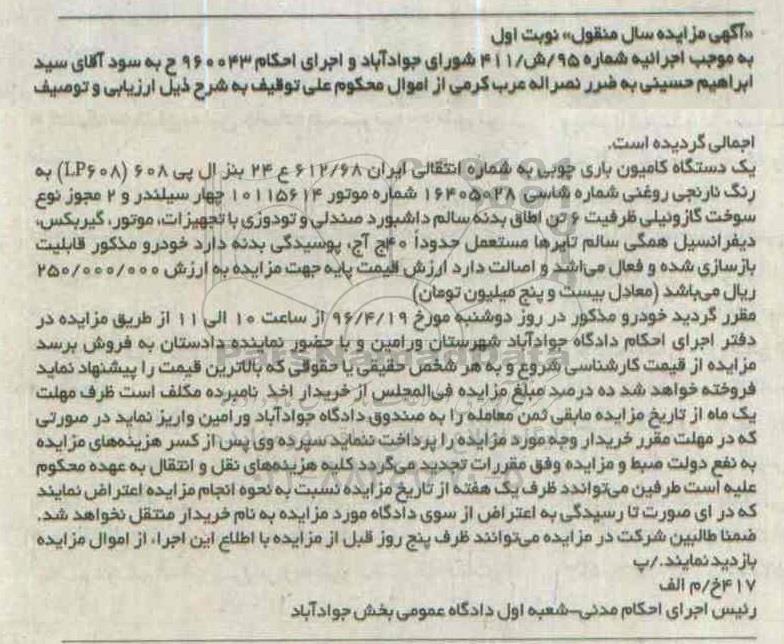 «آگهی مزایده سال منقول» نوبت اول
به موجب اجرائیه شماره ۹۵/ش/۴۱۱ شورای جوادآباد و اجرای احکام ۹۶۰۰۴۳ ح به سود آقای سید
ابراهیم حسینی به ضرر نصراله عرب کرمی از اموال محکوم علی توقیف به شرح ذیل ارزیابی و توصیف
اجمالی گردیده است.
یک دستگاه کامیون باری چوبی به شماره انتقالی ایران ۶۱۲/۶۸ ع ۲۴ بنز ال پی ۶۰۸ (LP۶۰۸) به
رنگ نارنجی روغنی شماره شاسی ۱۶۴۰۵۰۲۸ شماره موتور ۱۰۱۱۵۶۱۴ چهار سیلندر و ۲ مجوز نوع
سوخت گازوئیلی ظرفیت ۶ تن اطاق بدنه سالم داشبورد صندلی و تودوزی با تجهیزات، موتور، گیربکس،
دیفرانسیل همگی سالم تایرها مستعمل حدوداً ۴۰ج آج، پوسیدگی بدنه دارد خودرو مذکور قابلیت
بازسازی شده و فعال می‌باشد و اصالت دارد ارزش قیمت پایه جهت مزایده به ارزش ۲۵۰/۰۰۰/۰۰۰
ریال می‌باشد (معادل بیست و پنج میلیون تومان)
مقرر گردید خودرو مذکور در روز دوشنبه مورخ ۹۶/۴/۱۹ از ساعت ۱۰ الی ۱۱ از طریق مزایده در
دفتر اجرای احکام دادگاه جوادآباد شهرستان ورامین و با حضور نماینده دادستان به فروش برسد
مزایده از قیمت کارشناسی شروع و به هر شخص حقیقی یا حقوقی که بالاترین قیمت را پیشنهاد نماید
فروخته خواهد شد ده درصد مبلغ مزایده فی‌المجلس از خریدار اخذ نامبرده مکلف است ظرف مهلت
یک ماه از تاریخ مزایده مابقی ثمن معامله را به صندوق دادگاه جوادآباد ورامین واریز نماید در صورتی
که در مهلت مقرر خریدار وجه مورد مزایده را پرداخت ننماید سپرده وی پس از کسر هزینه‌های مزایده
به نفع دولت ضبط و مزایده وفق مقررات تجدید می‌گردد کلیه هزینه‌های نقل و انتقال به عهده محکوم
علیه است طرفین می‌توانند ظرف یک هفته از تاریخ مزایده نسبت به نحوه انجام مزایده اعتراض نمایند
که در ای صورت تا رسیدگی به اعتراض از سوی دادگاه مورد مزایده به نام خریدار منتقل نخواهد شد.
ضمنا طالبین شرکت در مزایده می‌توانند ظرف پنج روز قبل از مزایده با اطلاع این اجرا، از اموال مزایده
بازدید نمایند./پ
۴۱۷خ/م الف
رئیس اجرای احکام مدنی-شعبه اول دادگاه عمومی بخش جوادآباد